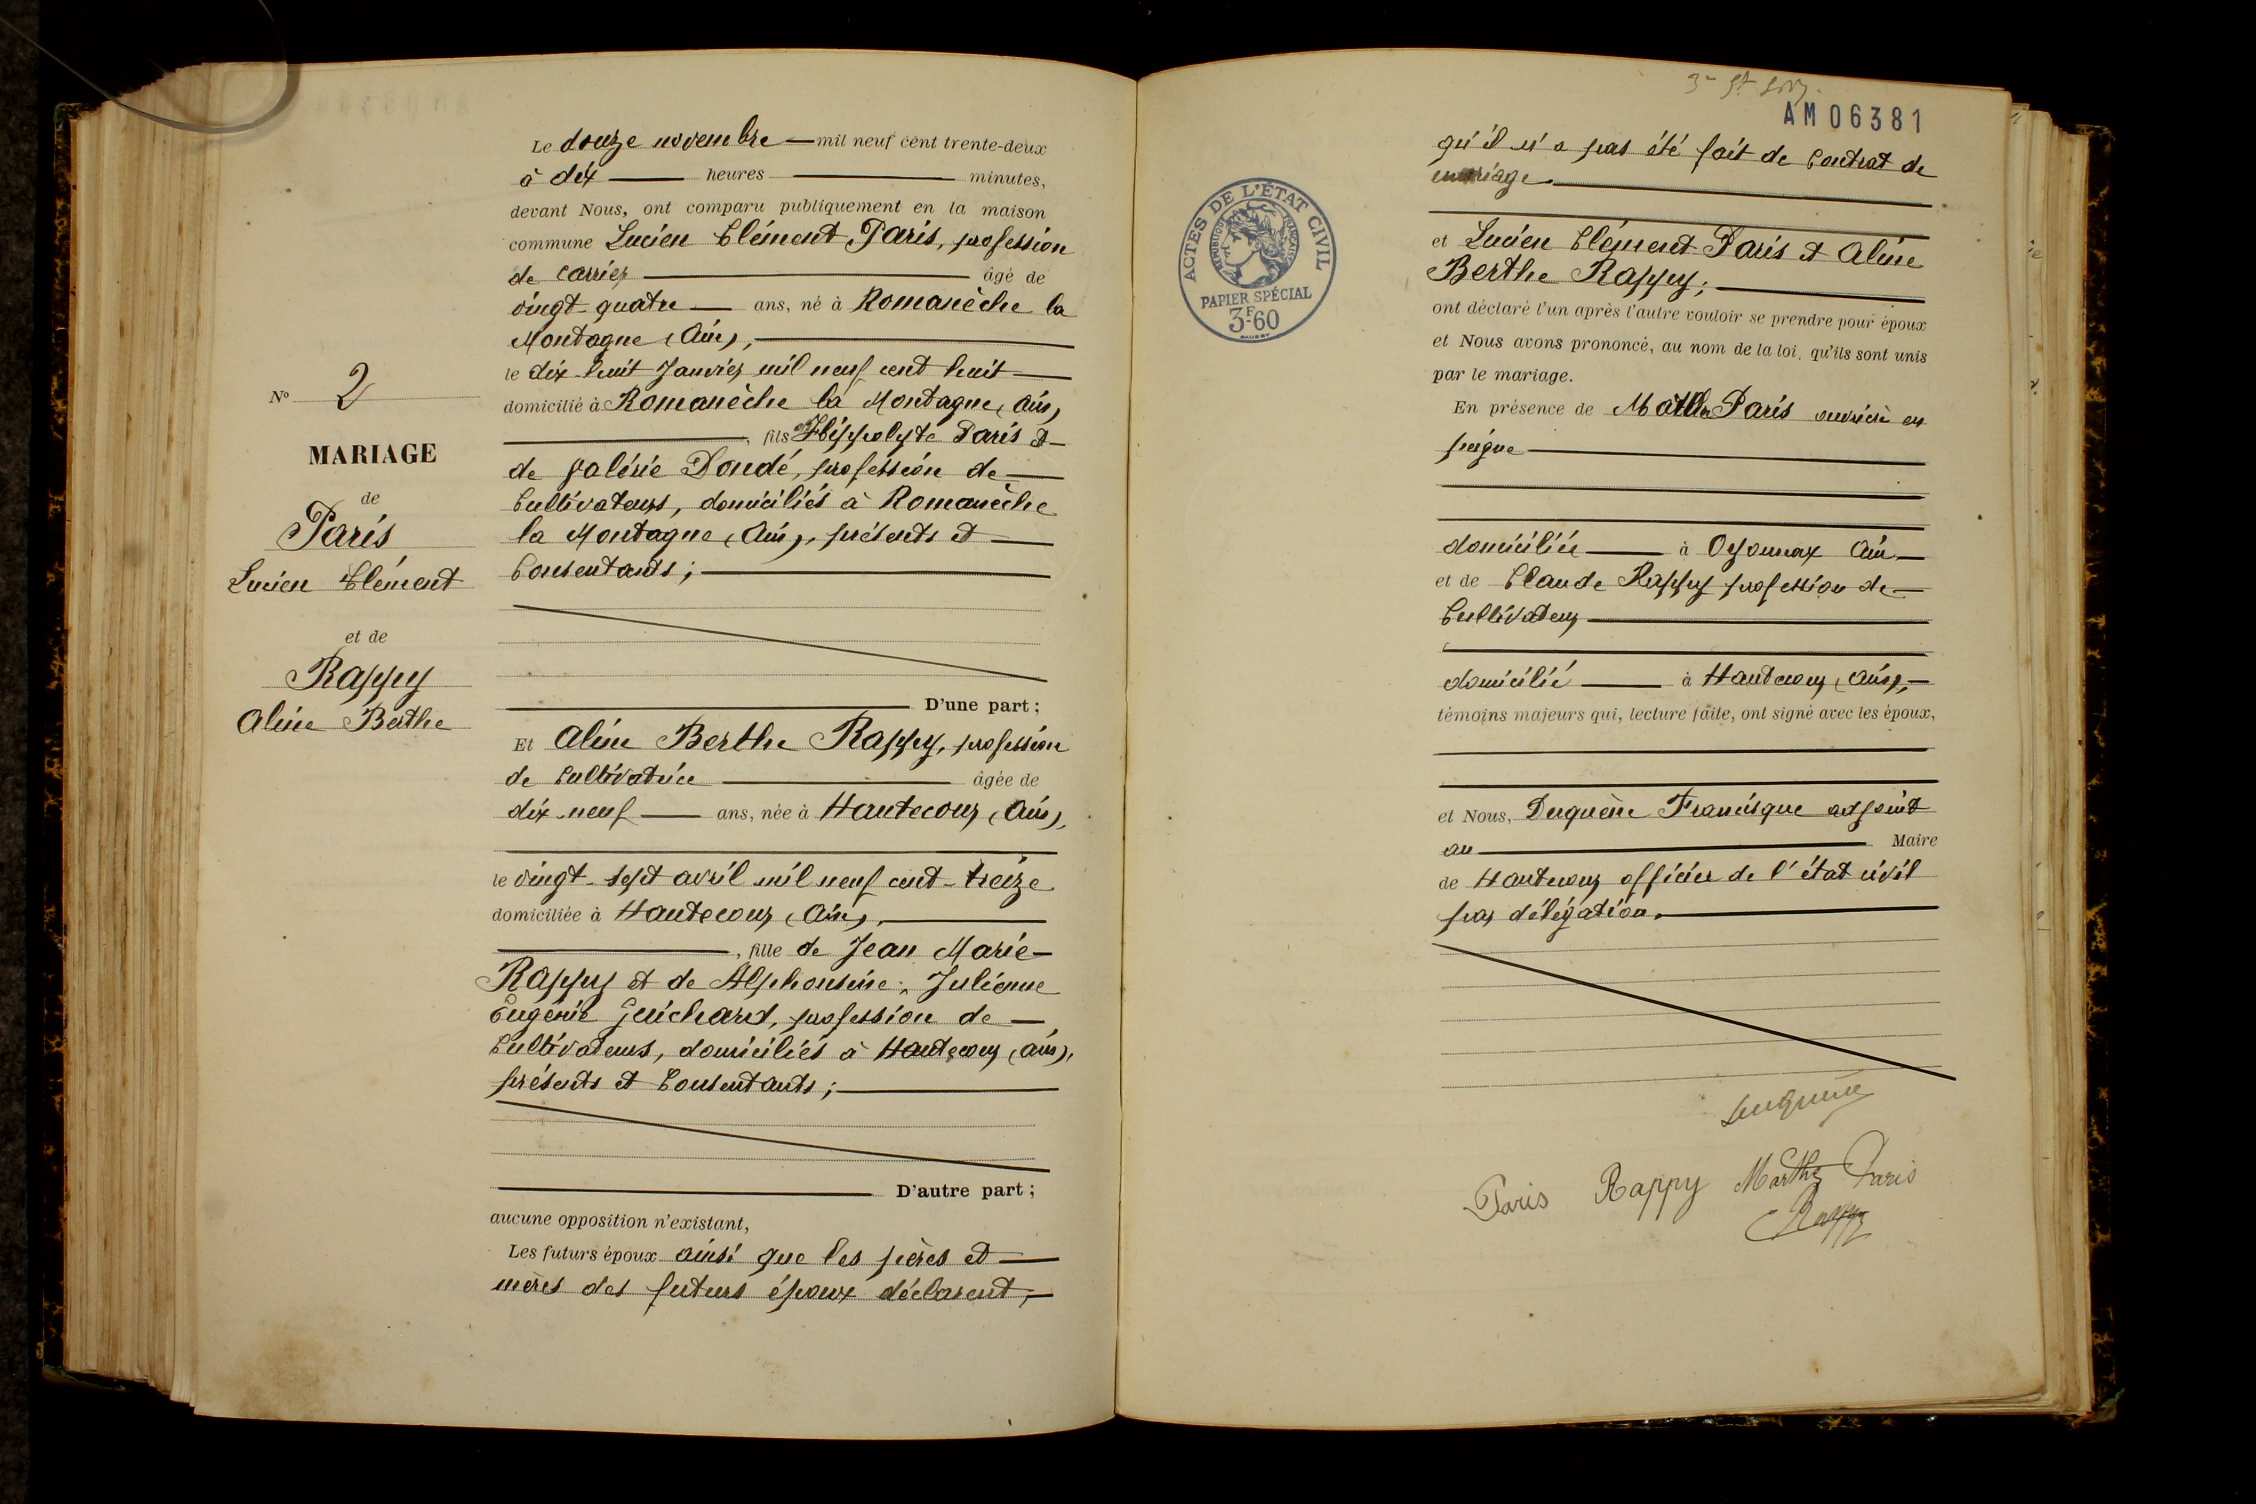 N° 2
MARIAGE
de
Paris
Lucien Clément
et de
Rappy
Aline Berthe
Le douze novembre mil neuf cent trente-deux
à dix heures minutes,
devant Nous, ont comparu publiquement en la maison
commune Lucien Clément Paris, profession
de carrier âgé de
vingt-quatre ans, né à Romanèche la
Montagne (Ain),
le dix-huit Janvier mil neuf cent huit
domicilié à Romanèche la Montagne (Ain)
, fils d'Hippolyte Paris et
de Valérie Dondé, profession de
Cultivateurs, domiciliés à Romanèche
la Montagne (Ain), présents et
Consentants ;
D'une part ;
Et Aline Berthe Rappy, profession
de Cultivatrice âgée de
dix-neuf ans, née à Hautecour (Ain),
le vingt-sept avril mil neuf cent-treize
domiciliée à Hautecour (Ain),
, fille de Jean Marie
Rappy et de Alphonsine, Julienne
Eugénie Guichard, profession de
Cultivateurs, domiciliés à Hautecour (Ain),
présents et Consentants ;
D'autre part ;
aucune opposition n'existant,
Les futurs époux ainsi que les pères et
mères des futurs époux déclarent,
AM06381
ACTES DE L'ÉTAT CIVIL
RÉPUBLIQUE FRANÇAISE
PAPIER SPÉCIAL
3F60
qu'il n'a pas été fait de Contrat de
mariage.
et Lucien Clément Paris et Aline
Berthe Rappy ;
ont déclaré l'un après l'autre vouloir se prendre pour époux
et Nous avons prononcé, au nom de la loi, qu'ils sont unis
par le mariage.
En présence de Paris ouvrière en
peigne
domiciliée à Oyonnax Ain
et de Claude Rappy profession de
Cultivateur
domicilié à Hautecour (Ain),
témoins majeurs qui, lecture faite, ont signé avec les époux,
et Nous, Duquène Francisque adjoint
au Maire
de Hautecour officier de l'état civil
par délégation.
Duquène
Paris Rappy Marthe Paris
Rappy